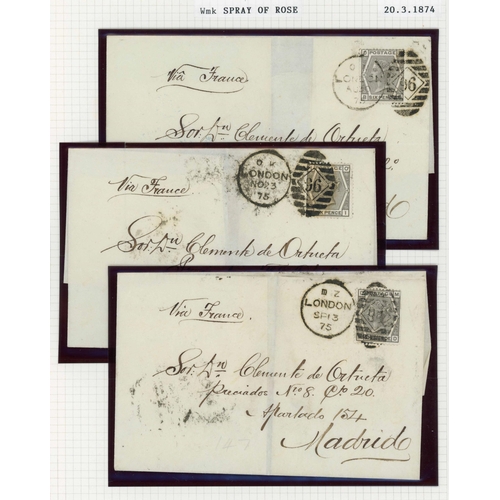 Wmk SPRAY OF ROSE 20.3.1874
Via France
LONDON
96
SIX PENCE
Sor. Dn Clemente de Ortueta
Via France
LONDON
NO 23
75
96
PENCE
Sor. Dn Clemente de Ortueta
Via France.
B Z
LONDON
SP 13
75
Sor. Dn Clemente de Ortueta
Preciados No 8. Cto 20.
Apartado 154
Madrid